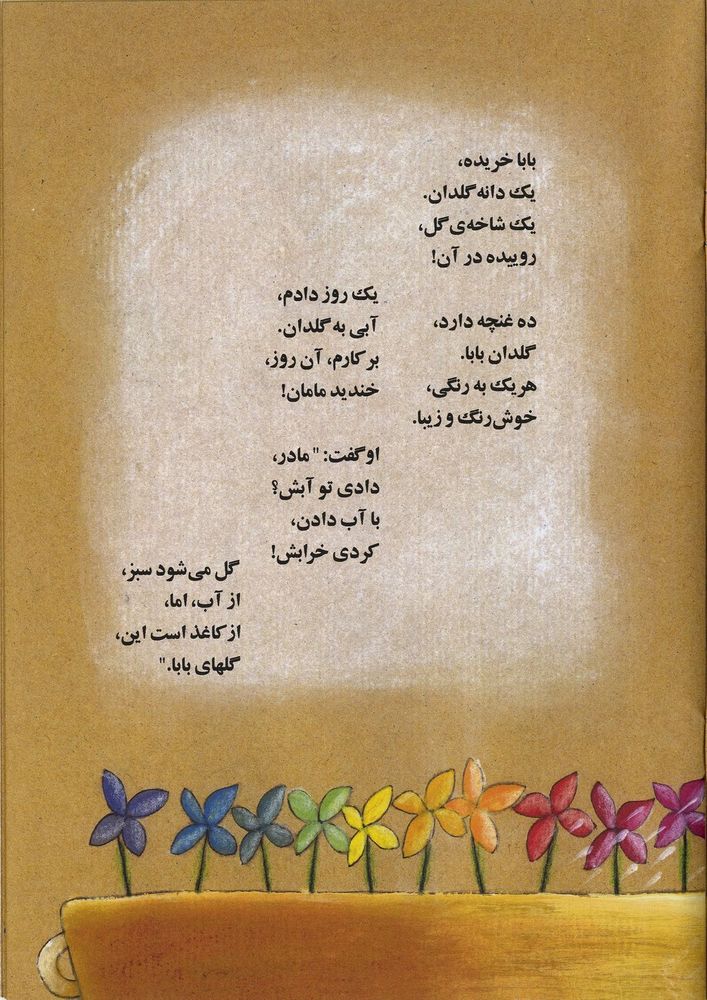 بابا خریده،
یک دانه گلدان.
یک شاخه‌ی گل،
روییده در آن!
ده غنچه دارد،
گلدان بابا.
هریک به رنگی،
خوش‌رنگ و زیبا.
یک روز دادم،
آبی به گلدان.
بر کارم، آن روز،
خندید مامان!
او گفت: " مادر،
دادی تو آبش؟
با آب دادن،
کردی خرابش!
گل می‌شود سبز،
از آب، اما،
از کاغذ است این،
گلهای بابا."